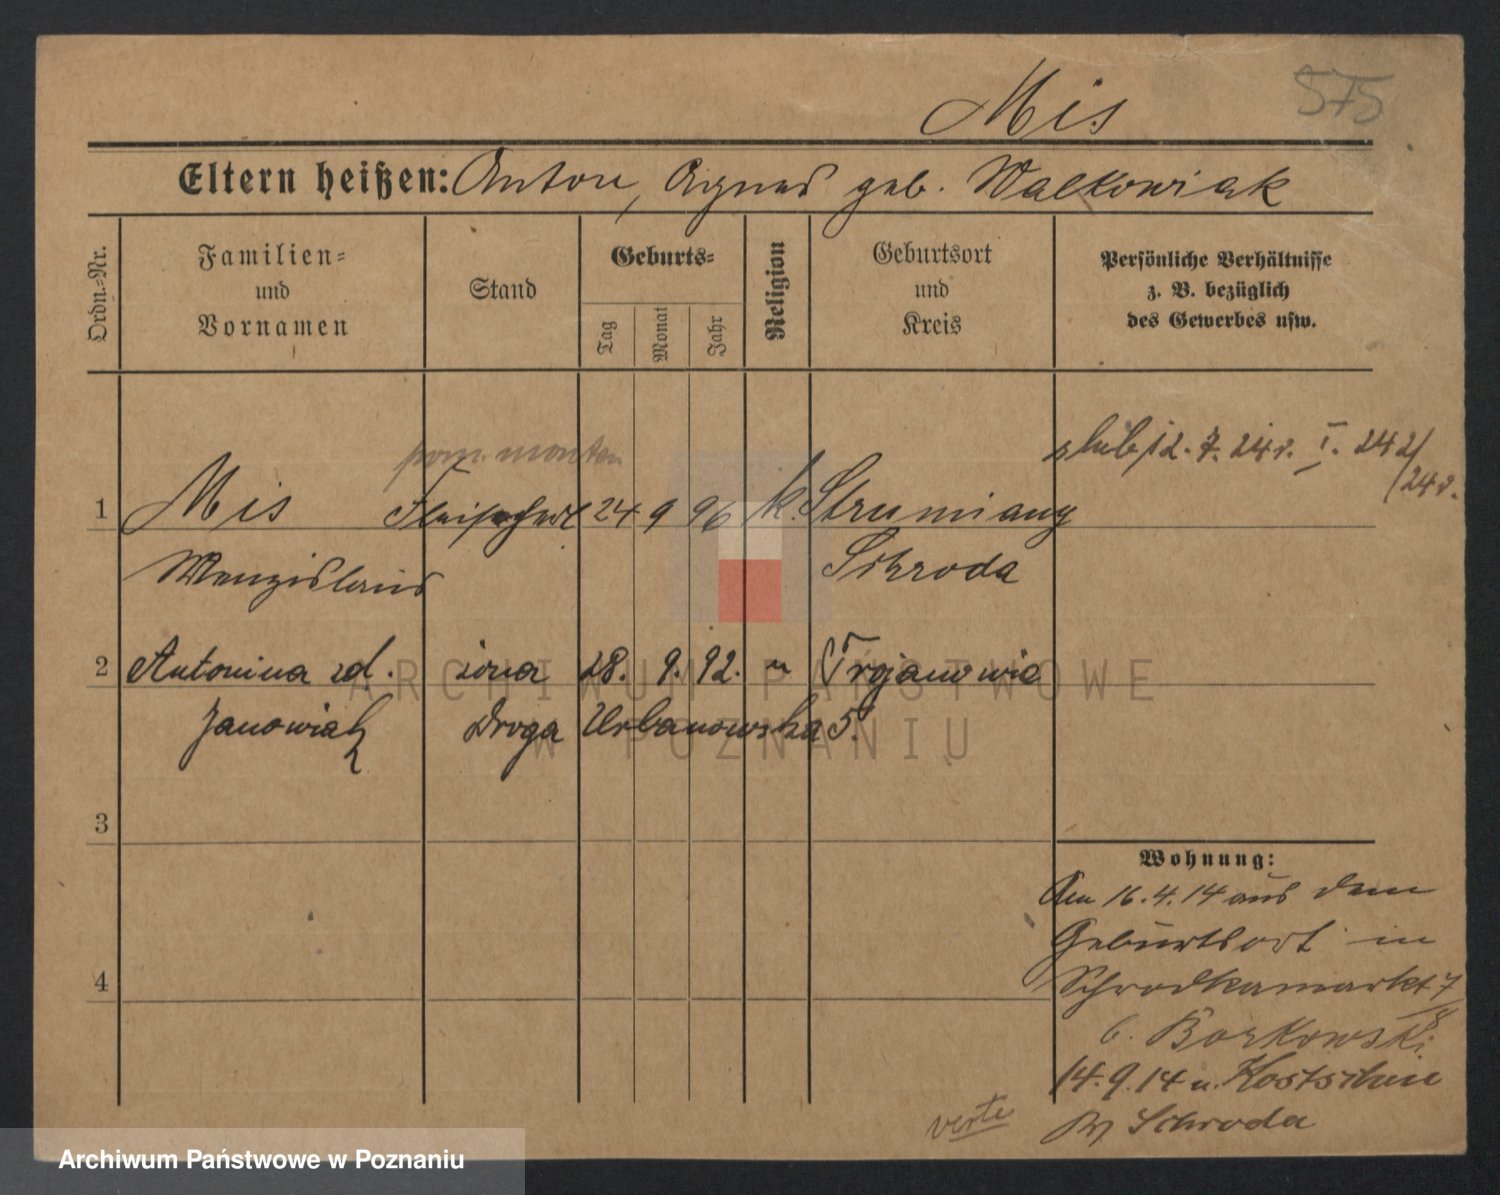 575
Mis
Eltern heißen: Anton, Agnes geb. Walkowiak
Ordn.-Nr.
Familien-
und
Vornamen
Stand
Geburts-
Tag
Monat
Jahr
Religion
Geburtsort
und
Kreis
Persönliche Verhältnisse
z. B. bezüglich
des Gewerbes usw.
ślub 12. 7. 24 r. I. 242/
24 r.
pom. monter
1 Mis Fleischerl 24 9 96 k. Strumiany
Wenzislaus Schroda
2 Antonina zd. żona 28. 9. 92. " Trojanowie
Janowiak Droga Urbanowska 5.
3
4
Wohnung:
Am 16.4.14 aus dem
Geburtsort in
Schrodkamarkt 7/8
b. Borkowski
14.9.14 n. Kostschin
Schroda
verte
ARCHIWUM PAŃSTWOWE
W POZNANIU
Archiwum Państwowe w Poznaniu